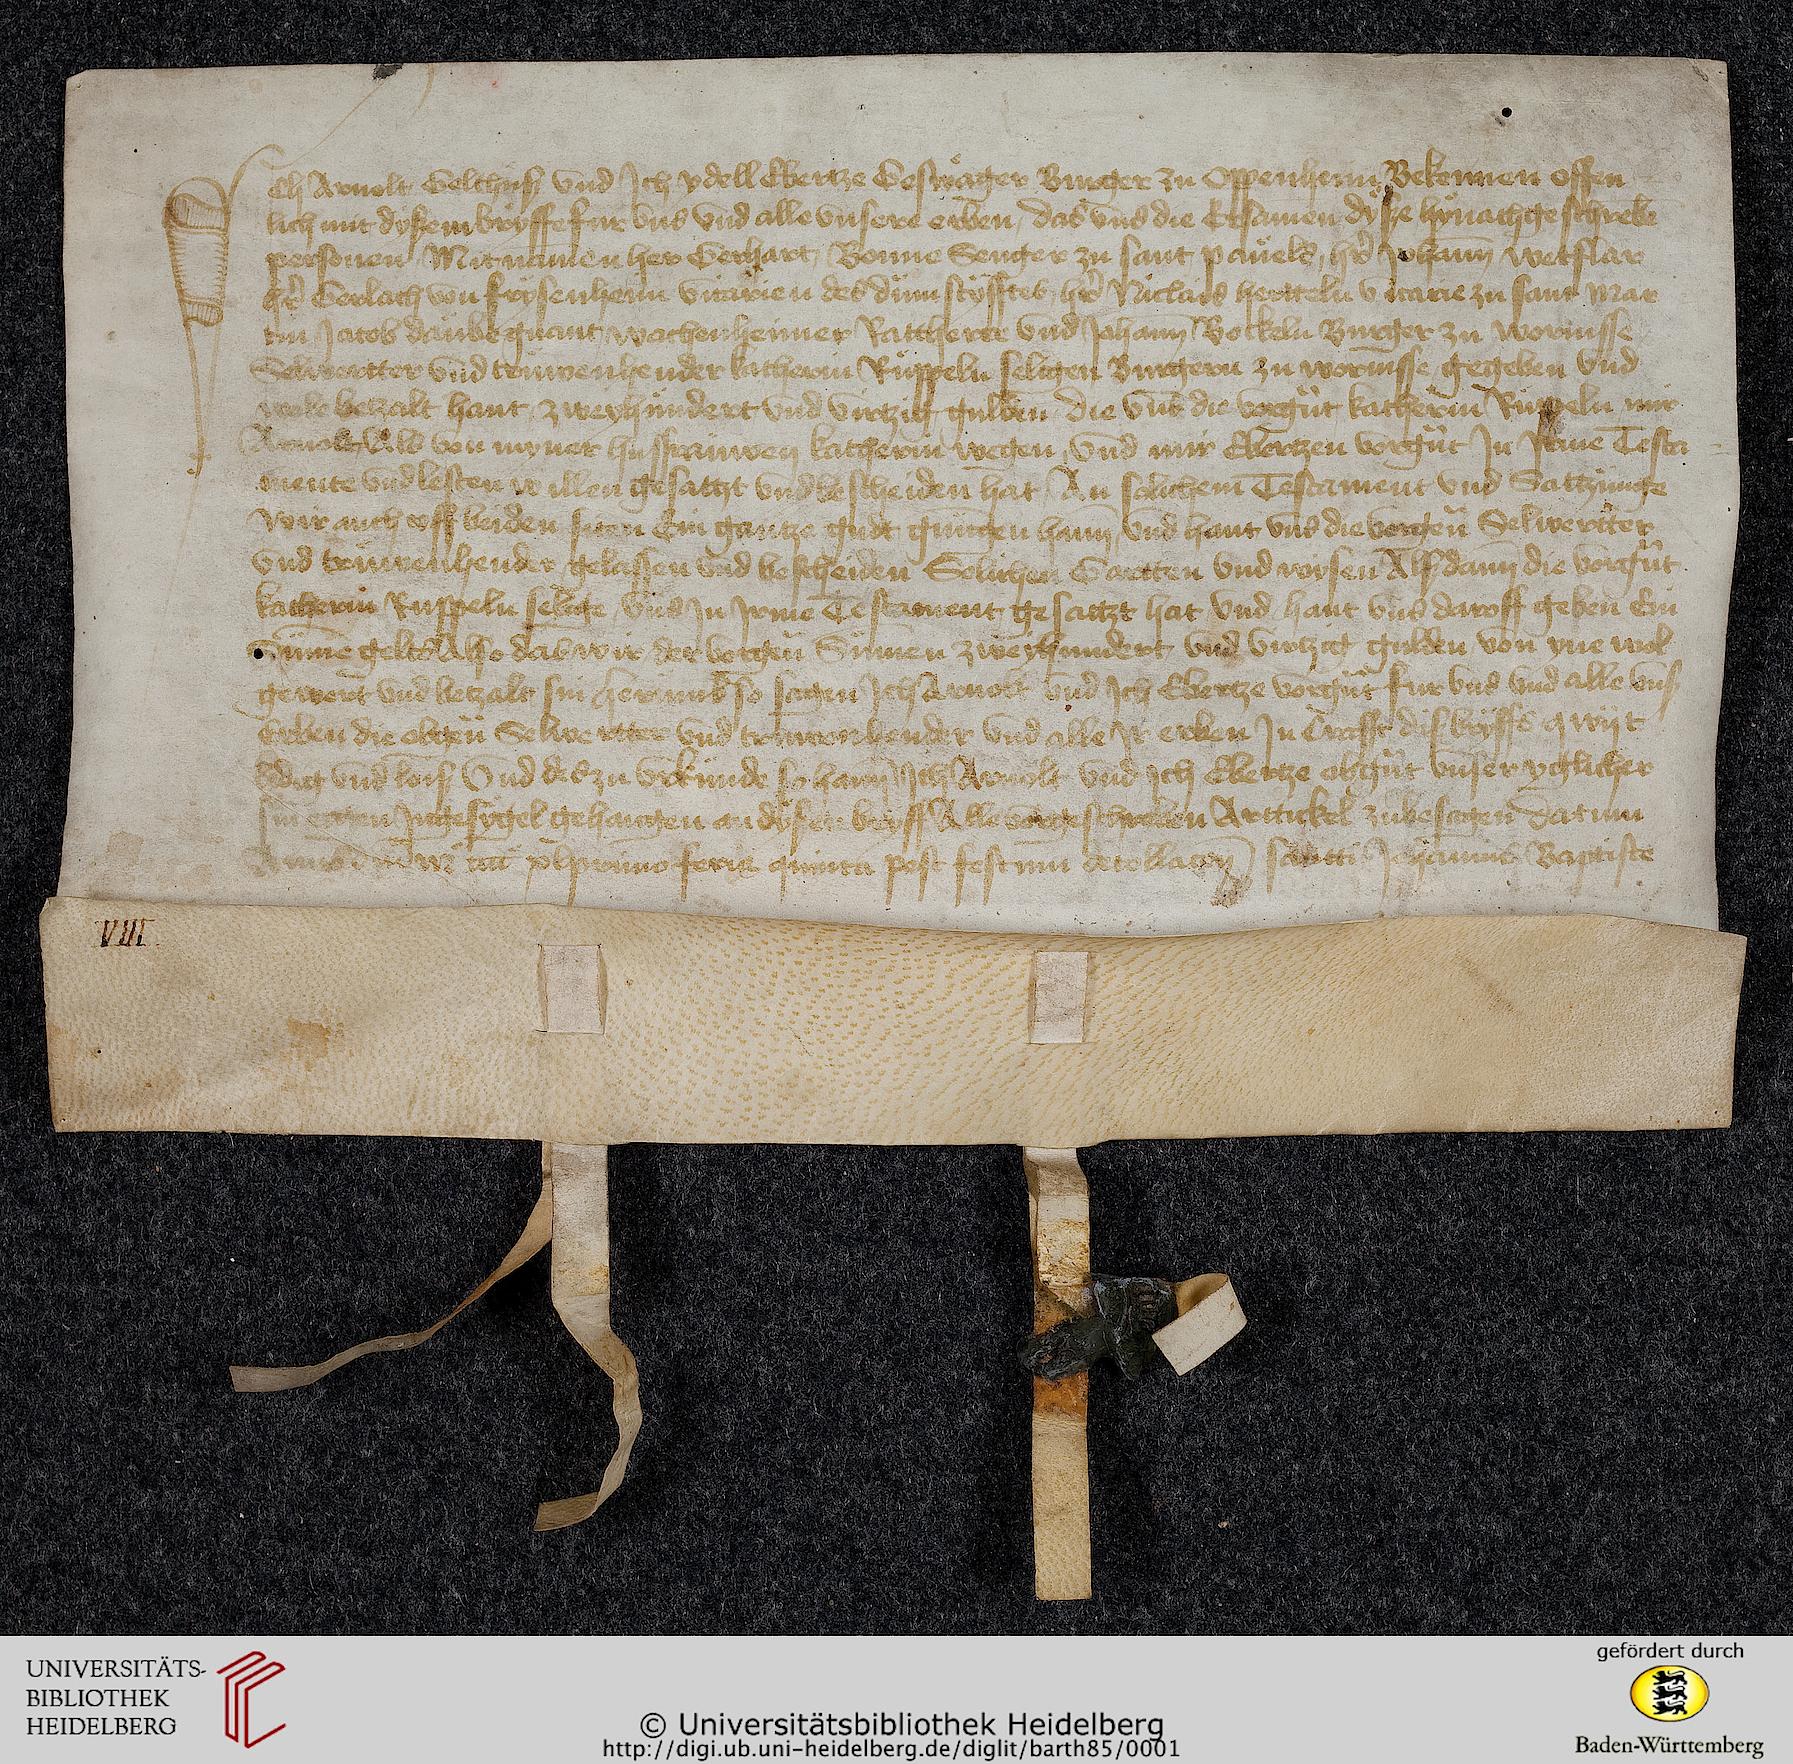 Ich Arnolt Gelthuß vnd Ich ydell Ebertze Geswåger Burger zu Oppenheim Bekennen offen
lich mit dysem bryffe fur vns vnd alle vnsere erben, das vns die Ersamen dysze hynachgeschrebē
personen Mit namen her Gerhart, Bonne Senger zu sant paüels, hr̄ Johann wetflar
hr̄ Gerlach von frysenheim vicarien des dümstyfftes, hr̄ Niclais hertteln vicarie zu sant Mar
tin Jacob daübe quant wachenheimer Rattherre vnd Johann Bockeln Burger zu wormsse
Selwertter vnd trüwenhender katherin Rüppeln seligen Burgern zu wormsse gegeben vnd
wole betzalt hant zweyhündert vnd virtzig gulden die vns die vorgn̄t katherin Rüppeln mir
Arnolt von myner hussfrauwen katherin wegen, vnd mir Ebertzen vorgn̄t In Irme Testa
mente vnd lesten willen gesatzt vnd bescheiden hat, An solichem Testament vnd Sattzünge
wir auch vff beiden siten Ein gantze gudt gnügen hann, vnd hant vns die vorgen̄ Selwertter
vnd trüwenhender gelassen vnd bescheiden Solichen Gartten vnd wysen Alß dann die vorgn̄t
katherin Ruppeln selige vns In Irme Testament gesattzt hat vnd hant vns daroff geben Ein
Sümme gelts Also das wir der vorgen̄ Sümen zweyhundert vnd virtzig gulden von yne wol
gewert vnd betzalt sin herümb so sagen Ich Arnolt vnd Ich Ebertze vorgn̄t fur vns vnd alle vnß
erben die obgen̄ Selwertter vnd truwenhender vnd alle Ir erben In Crafft diß bryffs qwijt
ledig vnd loiß Vnd des zu vrkünde so hann Ich Arnolt vnd Ich Ebertze obgn̄t vnser yglicher
sin eygen Ingesygel gehangen an dysen bryff Alle vorgeschreben Arttickel zubesagen datum
Anno primo feria quinta post festum decollacōn sancti Johannis Baptiste
VIII
UNIVERSITÄTS-
BIBLIOTHEK
HEIDELBERG
© Universitätsbibliothek Heidelberg
http://digi.ub.uni-heidelberg.de/diglit/barth85/0001
gefördert durch
Baden-Württemberg